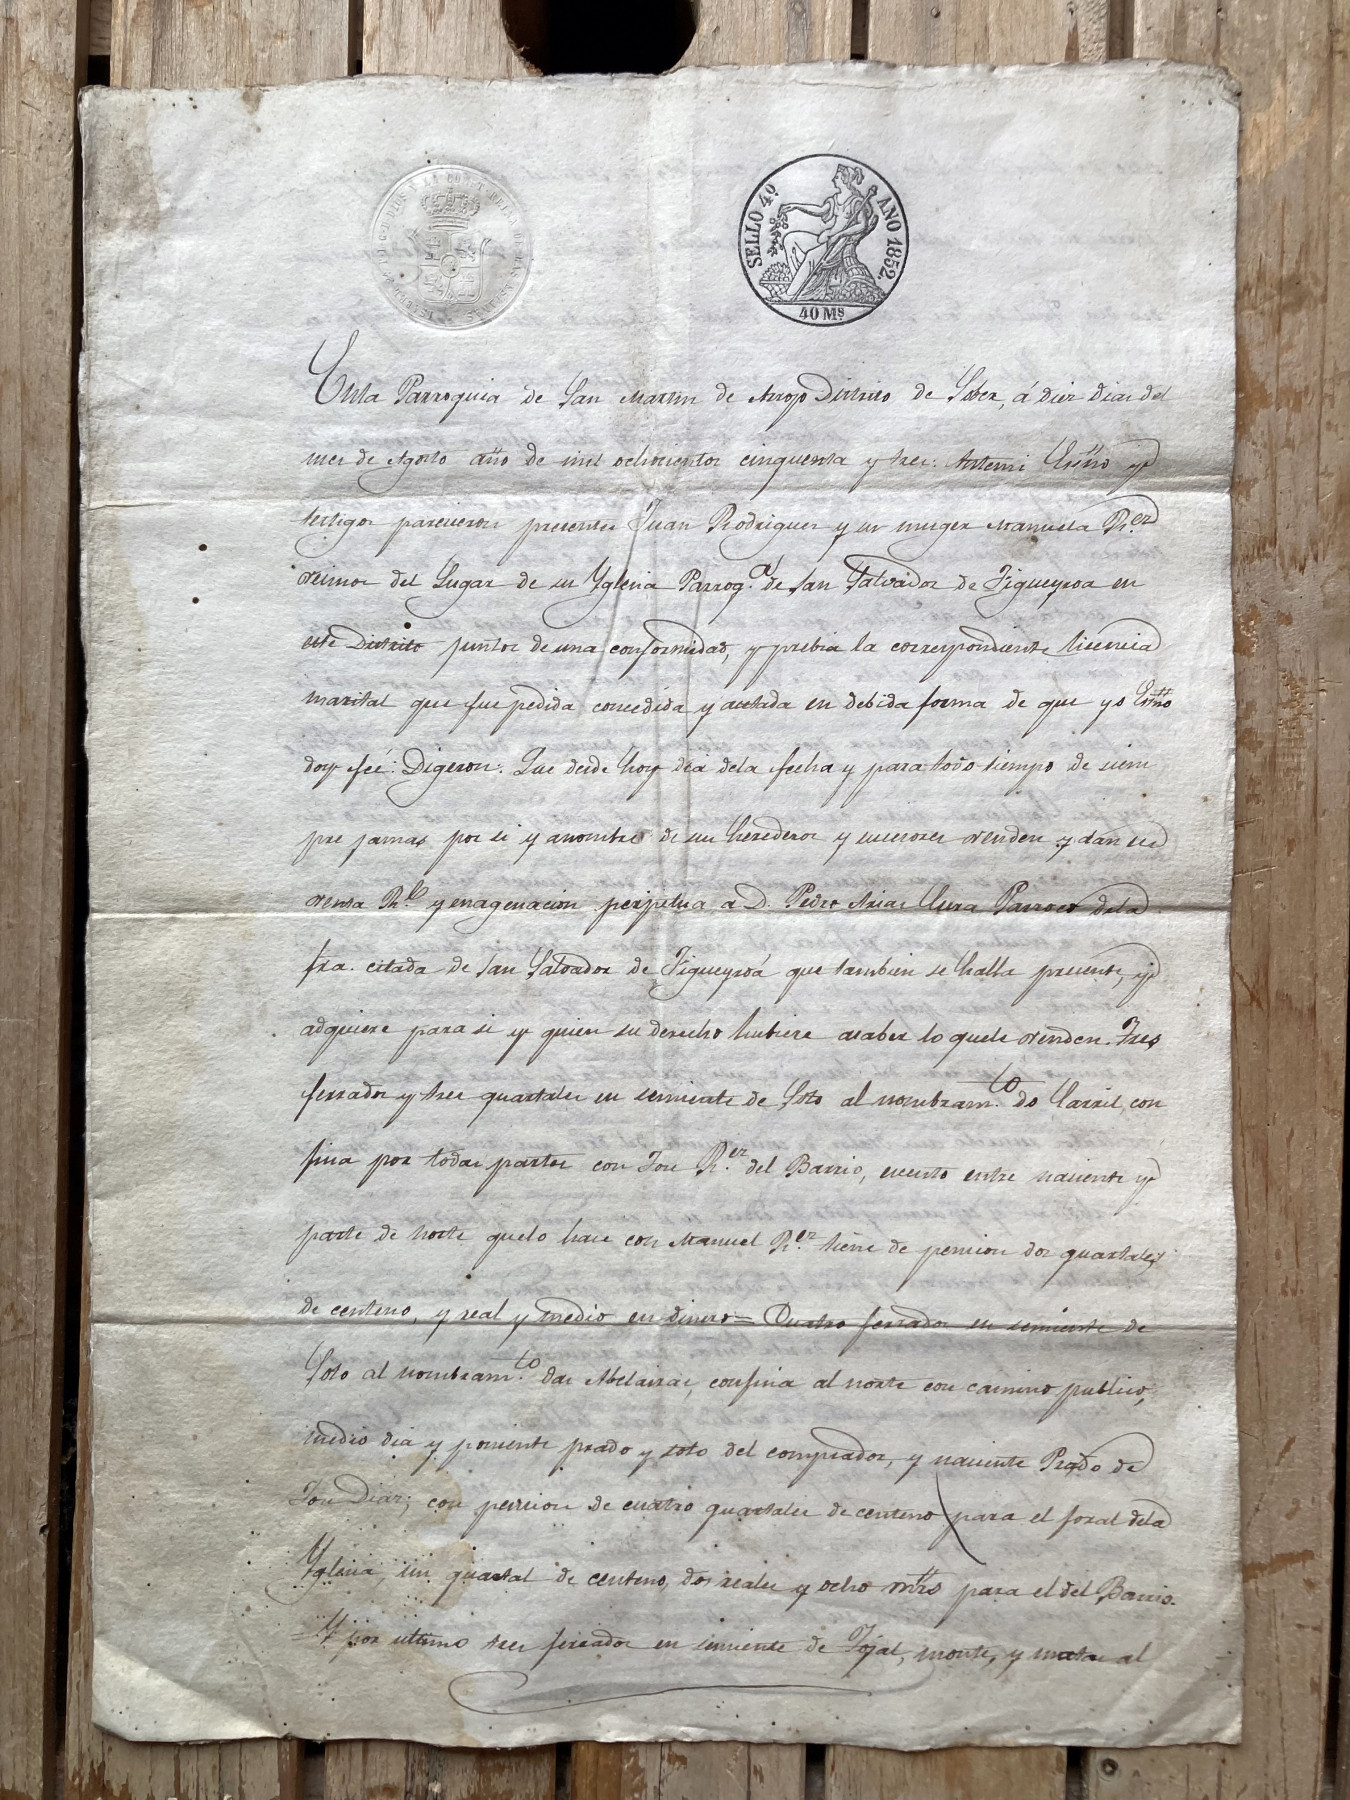 SELLO 4º AÑO 1852.
40 Ms
Enla Parroquia de San Martin de Arrojo Distrito de Sober, á diez dias del
mes de Agosto año de mil ochocientos cinquenta y tres: Antemi Essno y
testigos parecieron presentes Juan Rodriguez y su muger Manuela Rez
vecinos del Lugar de su Yglesia Parroqa de San Salvador de Figueyroa en
este Distrito juntos de una conformidad, y prebia la correspondiente licencia
marital que fue pedida concedida y acetada en debida forma de que yo Essno
doy feé: Digeron: Que desde hoy dia dela fecha y para todo tiempo de siem
pre jamas por si y anombre de sus herederos y sucesores venden y dan en
venta Rl y enagenacion perpetua a D. Pedro Arias Cura Parroco dela
fra. citada de San Salvador de Figueyroá que tambien se halla presente, y
adquiere para si y quien su derecho hubiere asaber lo quele venden. Tres
ferrados y tres quartales en semiente de Soto al nombramto do Carril, con
fina por todas partes con Jose Rez del Barrio, ecceto entre naciente y
parte de norte quelo hace con Manuel Rez tiene de pension dos quartales
de centeno, y real y medio en dinero = Quatro ferrados en semiente de
Soto al nombramto das Abelairas, confina al norte con camino publico,
medio dia y poniente prado y soto del comprador, y naciente Prado de
Jose Diaz; con pension de cuatro quartales de centeno para el foral dela
Yglesia, un quartal de centeno, dos reales y ocho mrs para el del Barrio.
Y por ultimo tres ferrados en semiente de Tojal, monte, y matas al